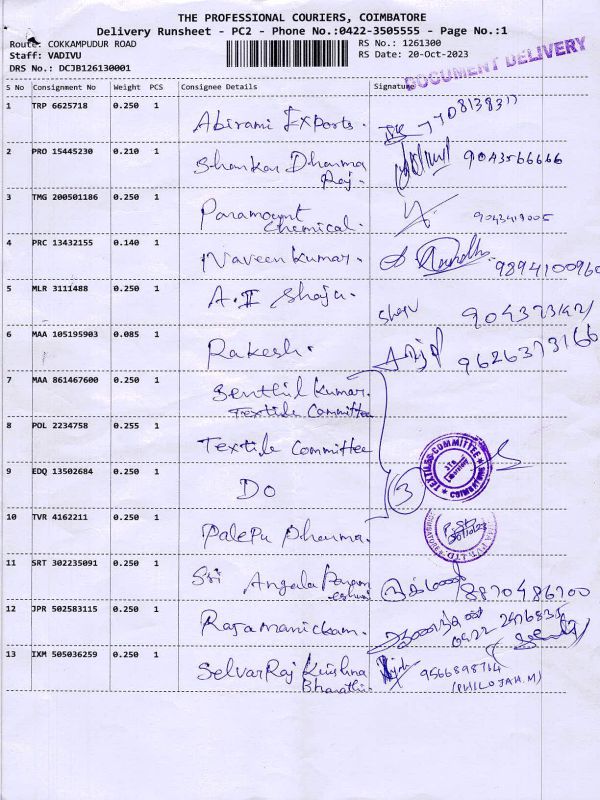 THE PROFESSIONAL COURIERS, COIMBATORE
Delivery Runsheet - PC2 - Phone No.:0422-3505555 - Page No.:1
Route: COKKAMPUDUR ROAD
RS No.: 1261300
Staff: VADIVU
RS Date: 20-Oct-2023
DRS No.: DCJB126130001
DOCUMENT DELIVERY
S No Consignment No Weight PCS Consignee Details Signature
1 TRP 6625718 0.250 1 Abirami Exports.
2 PRO 15445230 0.210 1 Shankar Dharma Raj. 9043566666
3 TMG 200501186 0.250 1 Paramount Chemical.
4 PRC 13432155 0.140 1 Naveen Kumar. 9894100960
5 MLR 3111488 0.250 1 A.I Shaja.
6 MAA 105195903 0.085 1 Rakesh. 9626373166
7 MAA 861467600 0.250 1 Senthil Kumar.
Textile Committee
8 POL 2234758 0.255 1 Textile Committee
TEXTILES COMMITTEE
COIMBATORE
9 EDQ 13502684 0.250 1 Do 3
10 TVR 4162211 0.250 1 Palepu Dharma.
11 SRT 302235091 0.250 1 Sri Angala Param eshwri 8870486700
12 JPR 502583115 0.250 1 Rajamanickam. 0422
13 IXM 505036259 0.250 1 SelvarRaj Krishna Bharathi. 9566898764
(PHILOJAH.M)